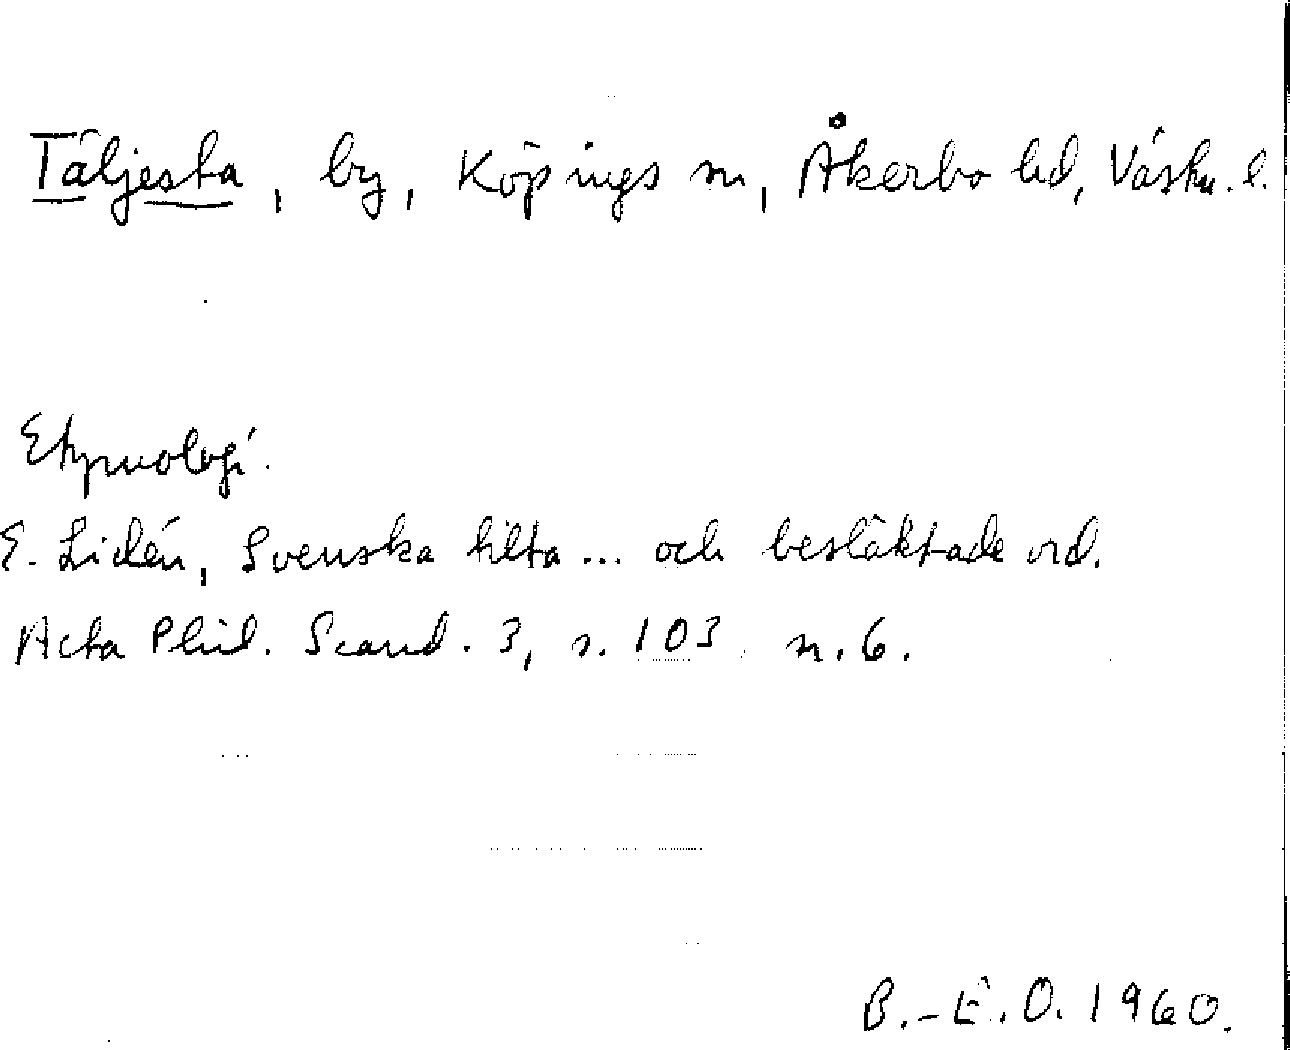 Täljesta, by, Köpings sn, Åkerbo hd, Västm. l.
Etymologi.
E. Lidén, Svenska tilta ... och besläktade ord.
Acta Phil. Scand. 3, s. 103 n. 6.
B.-E. O. 1960.